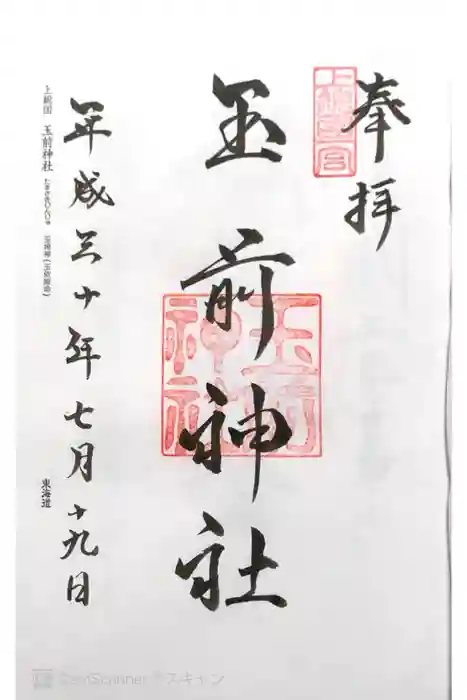 奉拝
玉前神社
玉前神社
平成三十年七月十九日
上総国 玉前神社 たまさきじんじゃ
東海道
CamScanner でスキャン